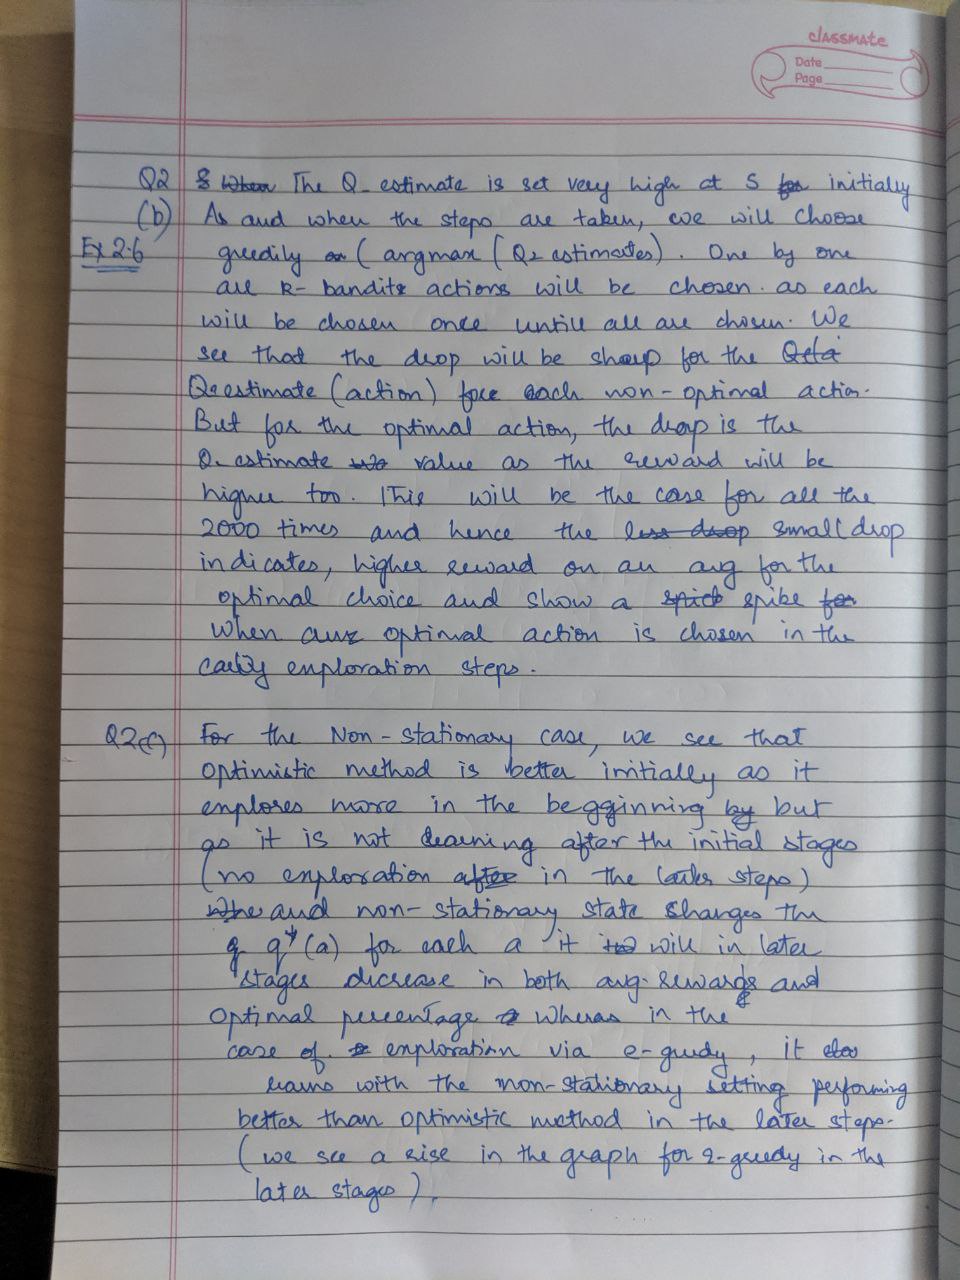 classmate
Date
Page
Q2 The Q-estimate is set very high at 5 initially
(b) As and when the steps are taken, we will choose
Ex 2.6 greedily (argmax (Q-estimates). One by one
all k-bandits actions will be chosen. as each
will be chosen once untill all are chosen. We
see that the drop will be sharp for the
Q-estimate (action) for each non-optimal action.
But for the optimal action, the drop is the
Q-estimate value as the reward will be
higher too. This will be the case for all the
2000 times and hence the less drop small drop
indicates, higher reward on an avg for the
optimal choice and show a spike for
when optimal action is chosen in the
early exploration steps.
Q2(c) For the Non-stationary case, we see that
optimistic method is better initially as it
explores more in the beggginning by but
as it is not learning after the initial stages
(no exploration after in the later steps)
and non-stationary state changes the
q*(a) for each a it will in later
stages dicrease in both avg. rewards and
optimal percentage wheras in the
case of exploration via e-greedy, it
learns with the non-stationary setting performing
better than optimistic method in the later steps.
(we see a rise in the graph for ε-greedy in the
later stages).